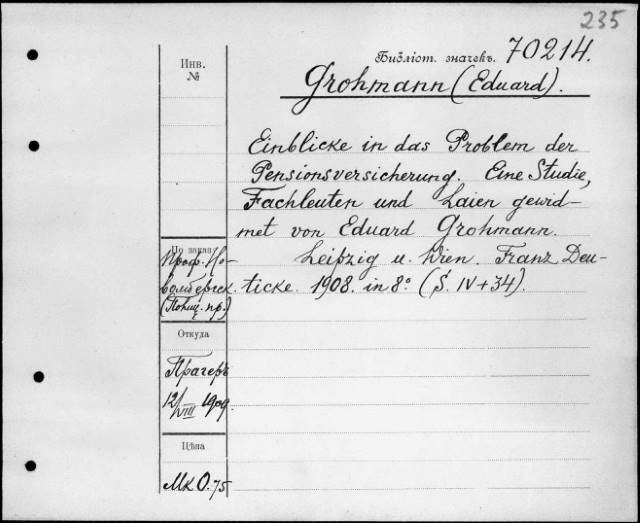 235
Инв.
№
Библіот. значекъ. 70214.
Grohmann (Eduard).
Einblicke in das Problem der
Pensionsversicherung. Eine Studie,
Fachleuten und Laien gewid-
met von Eduard Grohmann.
Leipzig u. Wien. Franz Deu-
ticke. 1908. in 8° (S. IV+34).
По заказу
Проф.
(Полиц. пр.)
Откуда
Прагеръ
12/VIII 1909
Цѣна
Мк 0.75